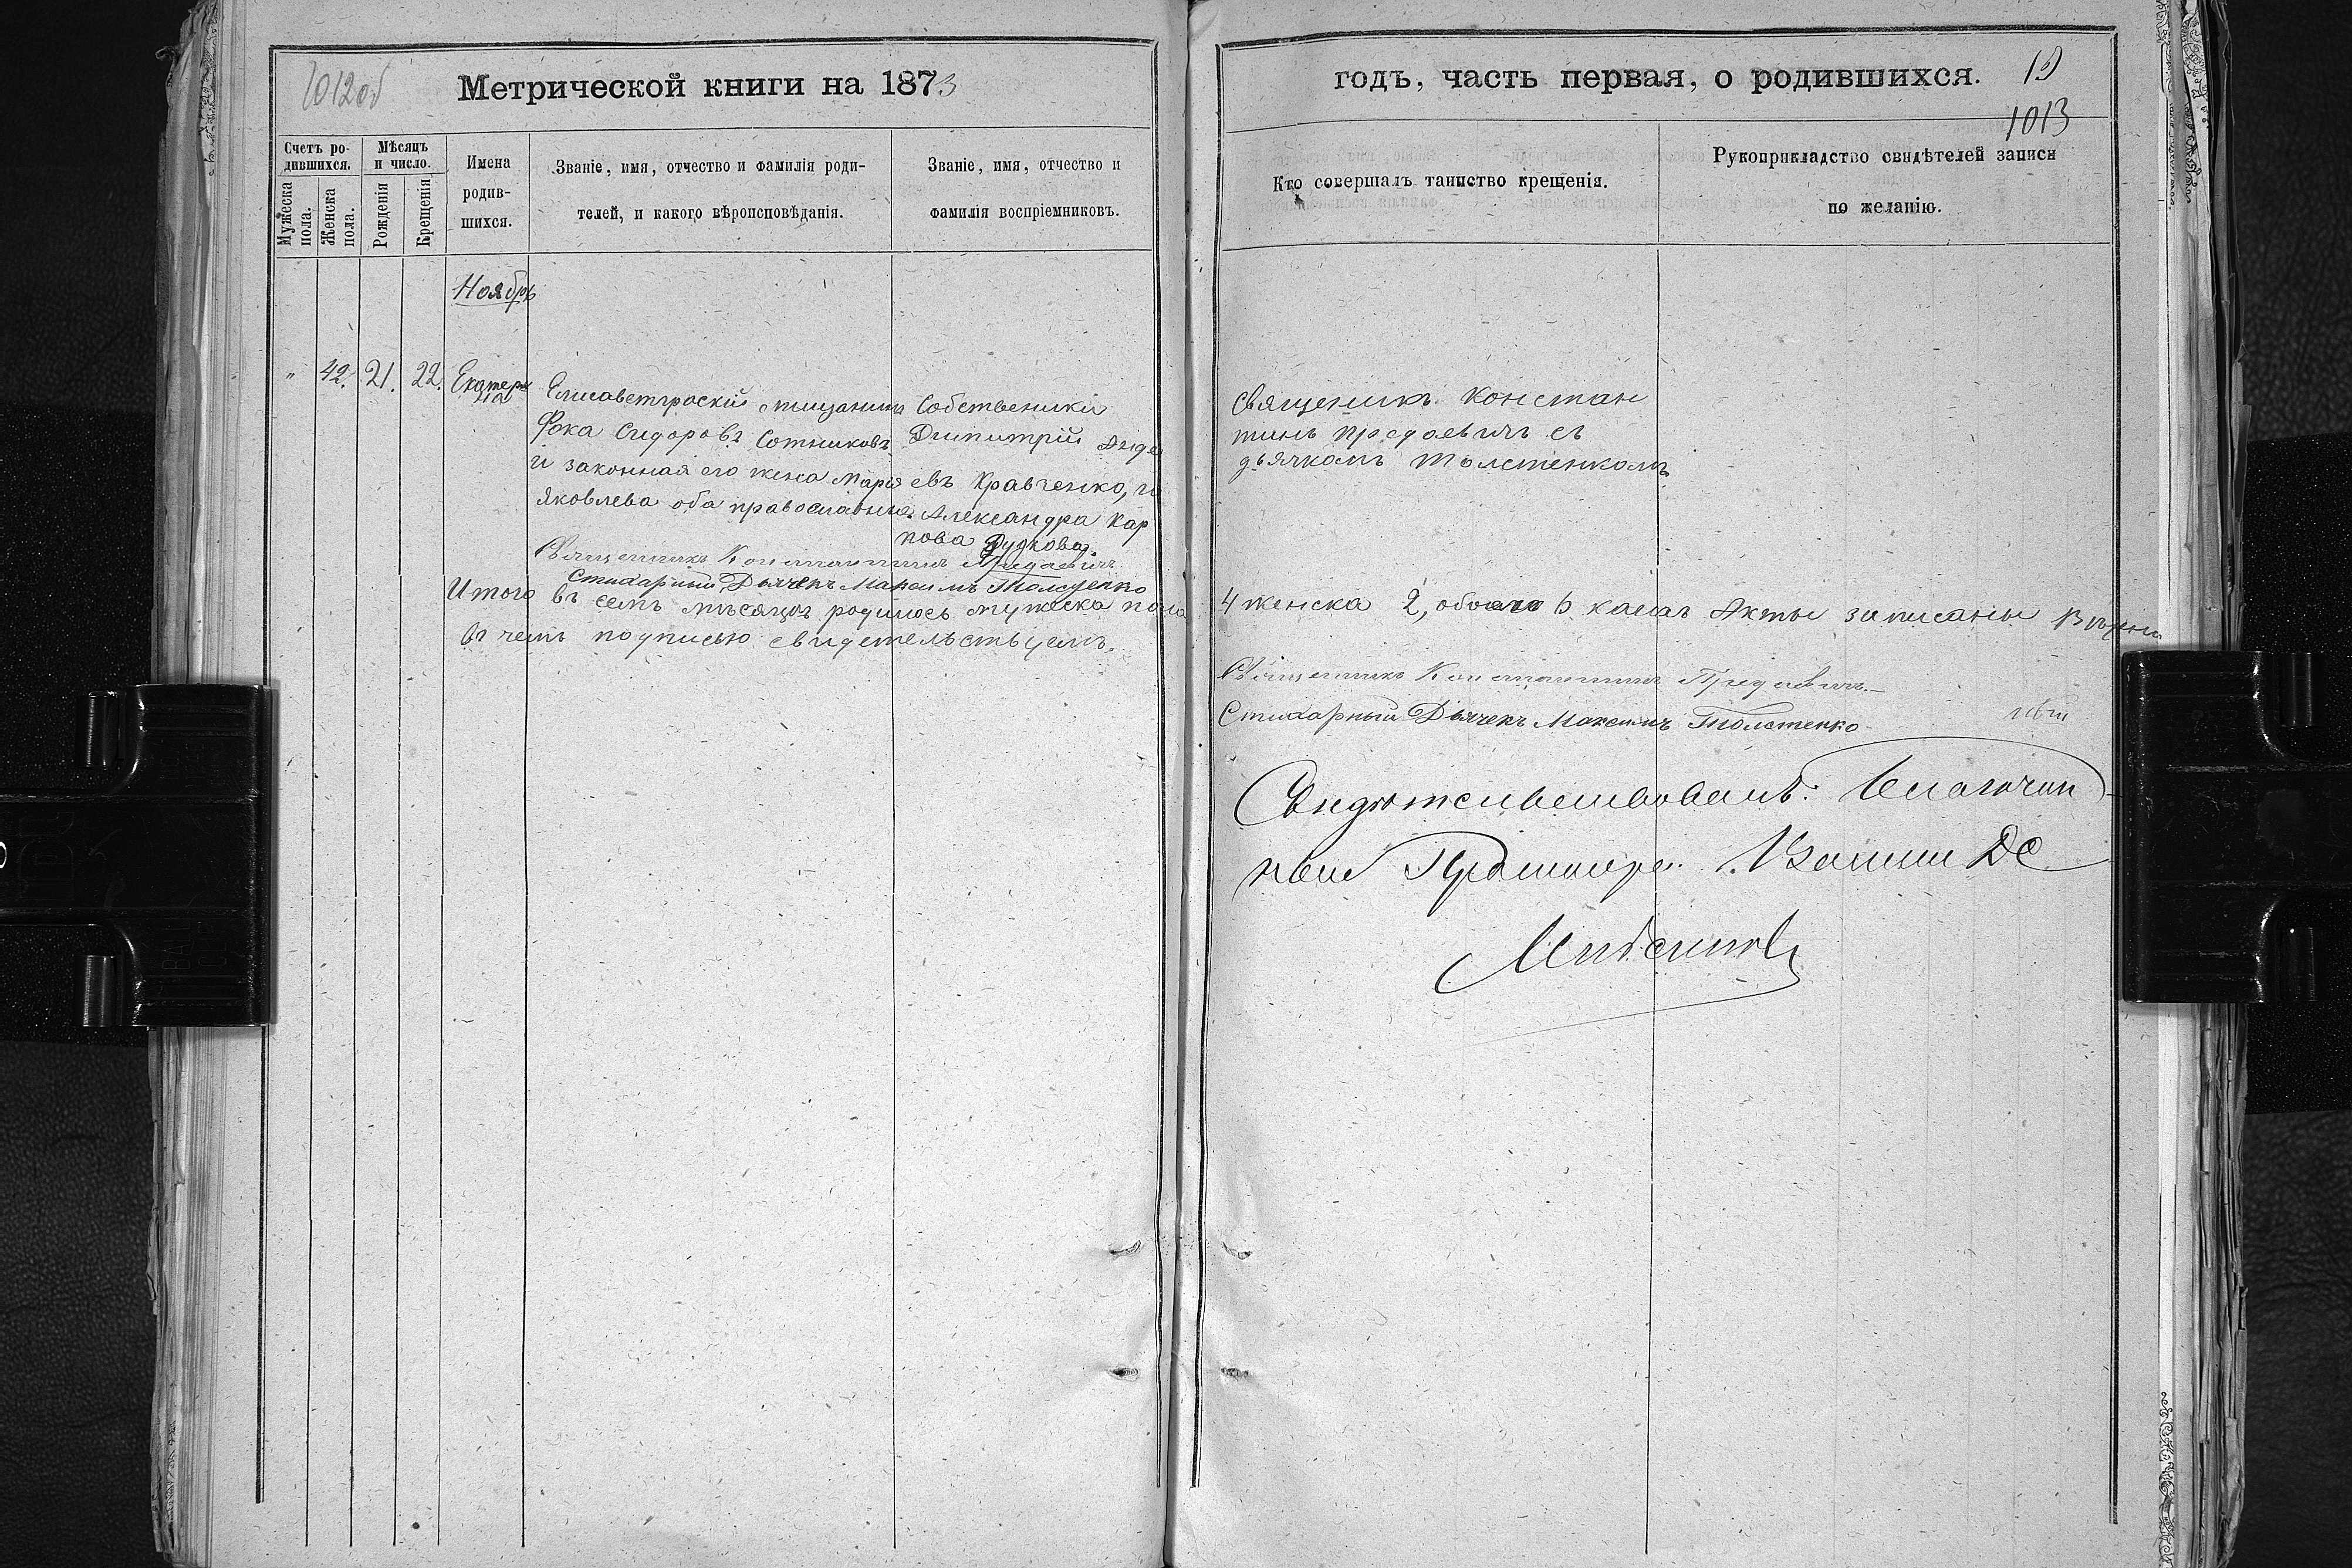 1012об
Метрической книги на 1873
Счетъ ро-
дившихся.
Мужеска пола.
Женска пола.
Мѣсяцъ
и число.
Рожденія
Крещенія
Имена
родив-
шихся.
Званіе, имя, отчество и фамилія роди-
телей, и какого вѣроисповѣданія.
Званіе, имя, отчество и
фамилія воспріемниковъ.
Ноябрь
" 42. 21. 22. Екатери
на
Елисаветгроскій мещанинъ
Фока Сидоровъ Сотниковъ
и законная его жена Марія
Яковлева оба православны.
Собственики
Димитрій Андре
евъ Кравченко, и
Александра Кар
пова Дудкова.
Священникъ Константинъ
Стихарный Дьячекъ Максимъ
Итого въ семъ мѣсяцѣ родилось мужеска пола
въ чемъ подписью свидетельствуемъ.
годъ, часть первая, о родившихся.
19
1013
Кто совершалъ таинство крещенія.
Рукоприкладство свидѣтелей записи
по желанію.
Священикъ Констан
тинъ Предаевичъ съ
дьячкомъ Толстенкомъ
4 женска 2, обоего 6 Акты записаны Вѣрны
Священникъ Константинъ Предаевичъ.
Стихарный Дьячекъ Максимъ Толстенко
Свидѣтельствовалъ: Благочин
ный Протоіерей